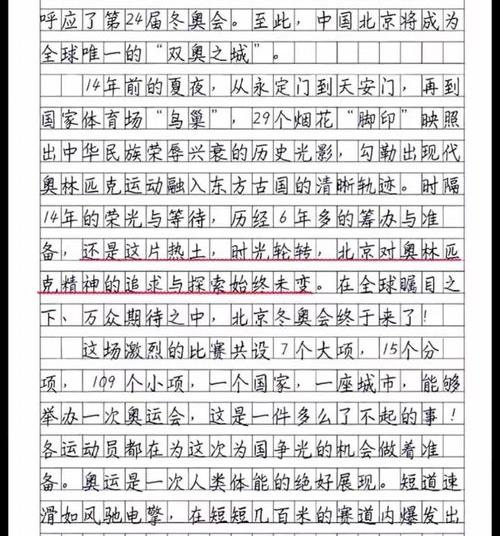 呼应了第24届冬奥会。至此，中国北京将成为
全球唯一的“双奥之城”。
14年前的夏夜，从永定门到天安门，再到
国家体育场“鸟巢”，29个烟花“脚印”映照
出中华民族荣辱兴衰的历史光影，勾勒出现代
奥林匹克运动融入东方古国的清晰轨迹。时隔
14年的荣光与等待，历经6年多的筹办与准
备，还是这片热土，时光轮转，北京对奥林匹
克精神的追求与探索始终未变。在全球瞩目之
下、万众期待之中，北京冬奥会终于来了！
这场激烈的比赛共设7个大项，15个分
项，109个小项，一个国家，一座城市，能够
举办一次奥运会，这是一件多么了不起的事！
各运动员都在为这次为国争光的机会做着准
备。奥运是一次人类体能的绝好展现。短道速
滑如风驰电掣，在短短几百米的赛道内爆发出